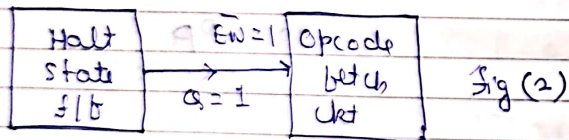 Halt
State
f/f
EN=1
Q=1
Opcode
fetch
Ckt
fig (2)